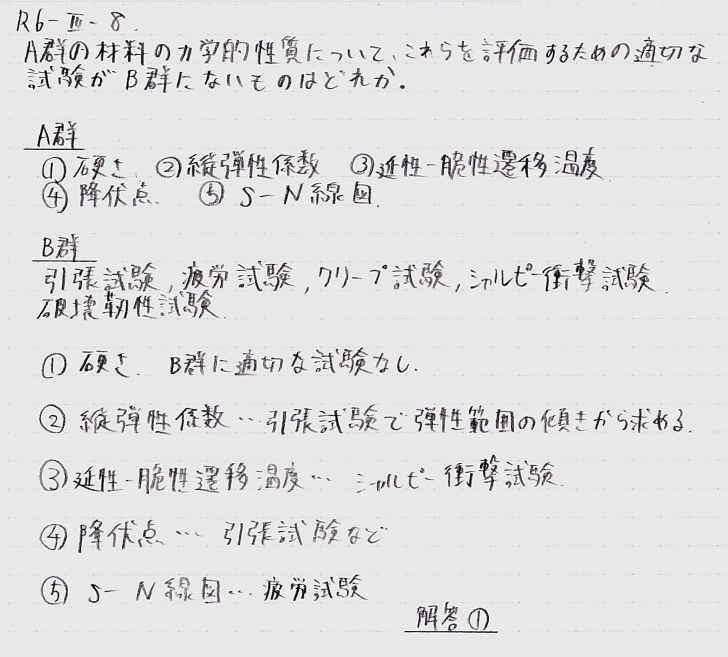 R6-Ⅲ-8.
A群の材料の力学的性質について、これらを評価するための適切な
試験がB群にないものはどれか。
A群
① 硬さ ②縦弾性係数 ③延性-脆性遷移温度
④ 降伏点 ⑤ S-N線図.
B群
引張試験, 疲労試験, クリープ試験, シャルピー衝撃試験
破壊靭性試験
① 硬さ. B群に適切な試験なし.
② 縦弾性係数…引張試験で弾性範囲の傾きから求める.
③延性-脆性遷移温度… シャルピー衝撃試験.
④ 降伏点… 引張試験など
⑤ S-N線図… 疲労試験
解答①